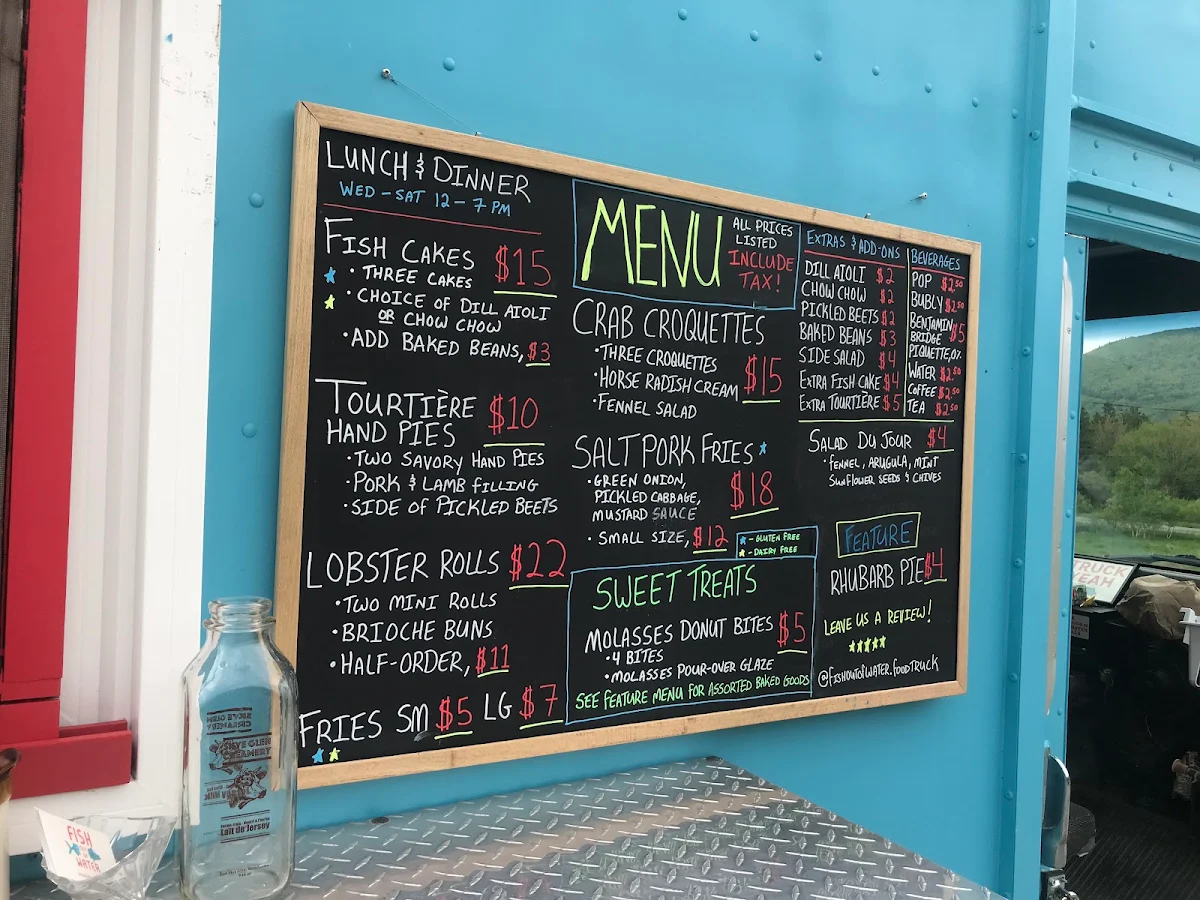 LUNCH & DINNER
WED - SAT 12 - 7 PM
FISH CAKES $15
• THREE CAKES
• CHOICE OF DILL AIOLI
OR CHOW CHOW
• ADD BAKED BEANS, $3
TOURTIÈRE $10
HAND PIES
• TWO SAVORY HAND PIES
• PORK & LAMB FILLING
• SIDE OF PICKLED BEETS
LOBSTER ROLLS $22
• TWO MINI ROLLS
• BRIOCHE BUNS
• HALF-ORDER, $11
FRIES SM $5 LG $7
MENU
ALL PRICES
LISTED
INCLUDE
TAX!
CRAB CROQUETTES
• THREE CROQUETTES
• HORSE RADISH CREAM $15
• FENNEL SALAD
SALT PORK FRIES
• GREEN ONION,
PICKLED CABBAGE, $18
MUSTARD SAUCE
• SMALL SIZE, $12
- GLUTEN FREE
- DAIRY FREE
SWEET TREATS
MOLASSES DONUT BITES $5
• 4 BITES
• MOLASSES POUR-OVER GLAZE
SEE FEATURE MENU FOR ASSORTED BAKED GOODS
EXTRAS & ADD-ONS
DILL AIOLI $2
CHOW CHOW $2
PICKLED BEETS $2
BAKED BEANS $3
SIDE SALAD $4
EXTRA FISH CAKE $4
EXTRA TOURTIÈRE $5
BEVERAGES
POP $2.50
BUBLY $2.50
BENJAMIN
BRIDGE $5
PIQUETTE, 0%
WATER $2.50
COFFEE $2.50
TEA $2.50
SALAD DU JOUR $4
• FENNEL, ARUGULA, MINT
SUNFLOWER SEEDS & CHIVES
FEATURE
RHUBARB PIE $4
LEAVE US A REVIEW!
@FISHOUTOFWATER.FOODTRUCK
SKYE GLEN
CREAMERY
Lait de Jersey
FISH
WATER
TRUCK
YEAH